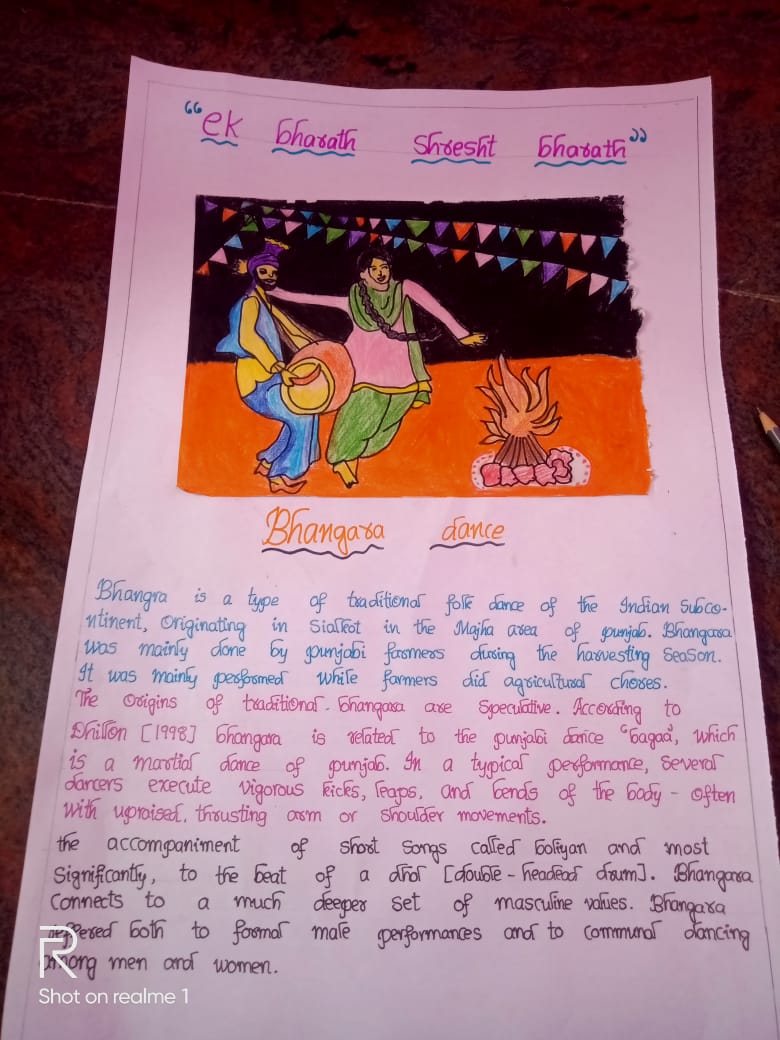 “ek bharath shresht bharath”
Bhangara dance
Bhangra is a type of traditional folk dance of the Indian Subco-
ntinent, Originating in Sialkot in the Majha area of punjab. Bhangara
was mainly done by punjabi farmers during the harvesting Season.
It was mainly performed while farmers did agricultural chores.
The Origins of traditional bhangara are Speculative. According to
Dhillon [1998] bhangara is related to the punjabi dance "bagaa", which
is a martial dance of punjab. In a typical performance, Several
dancers execute vigorous kicks, leaps, and bends of the body - often
with upraised, thrusting arm or shoulder movements.
the accompaniment of short Songs called boliyan and most
Significantly, to the beat of a dhol [double-headead drum]. Bhangara
Connects to a much deeper set of masculine values. Bhangara
reffered both to formal male performances and to communal dancing
among men and women.
R
Shot on realme 1